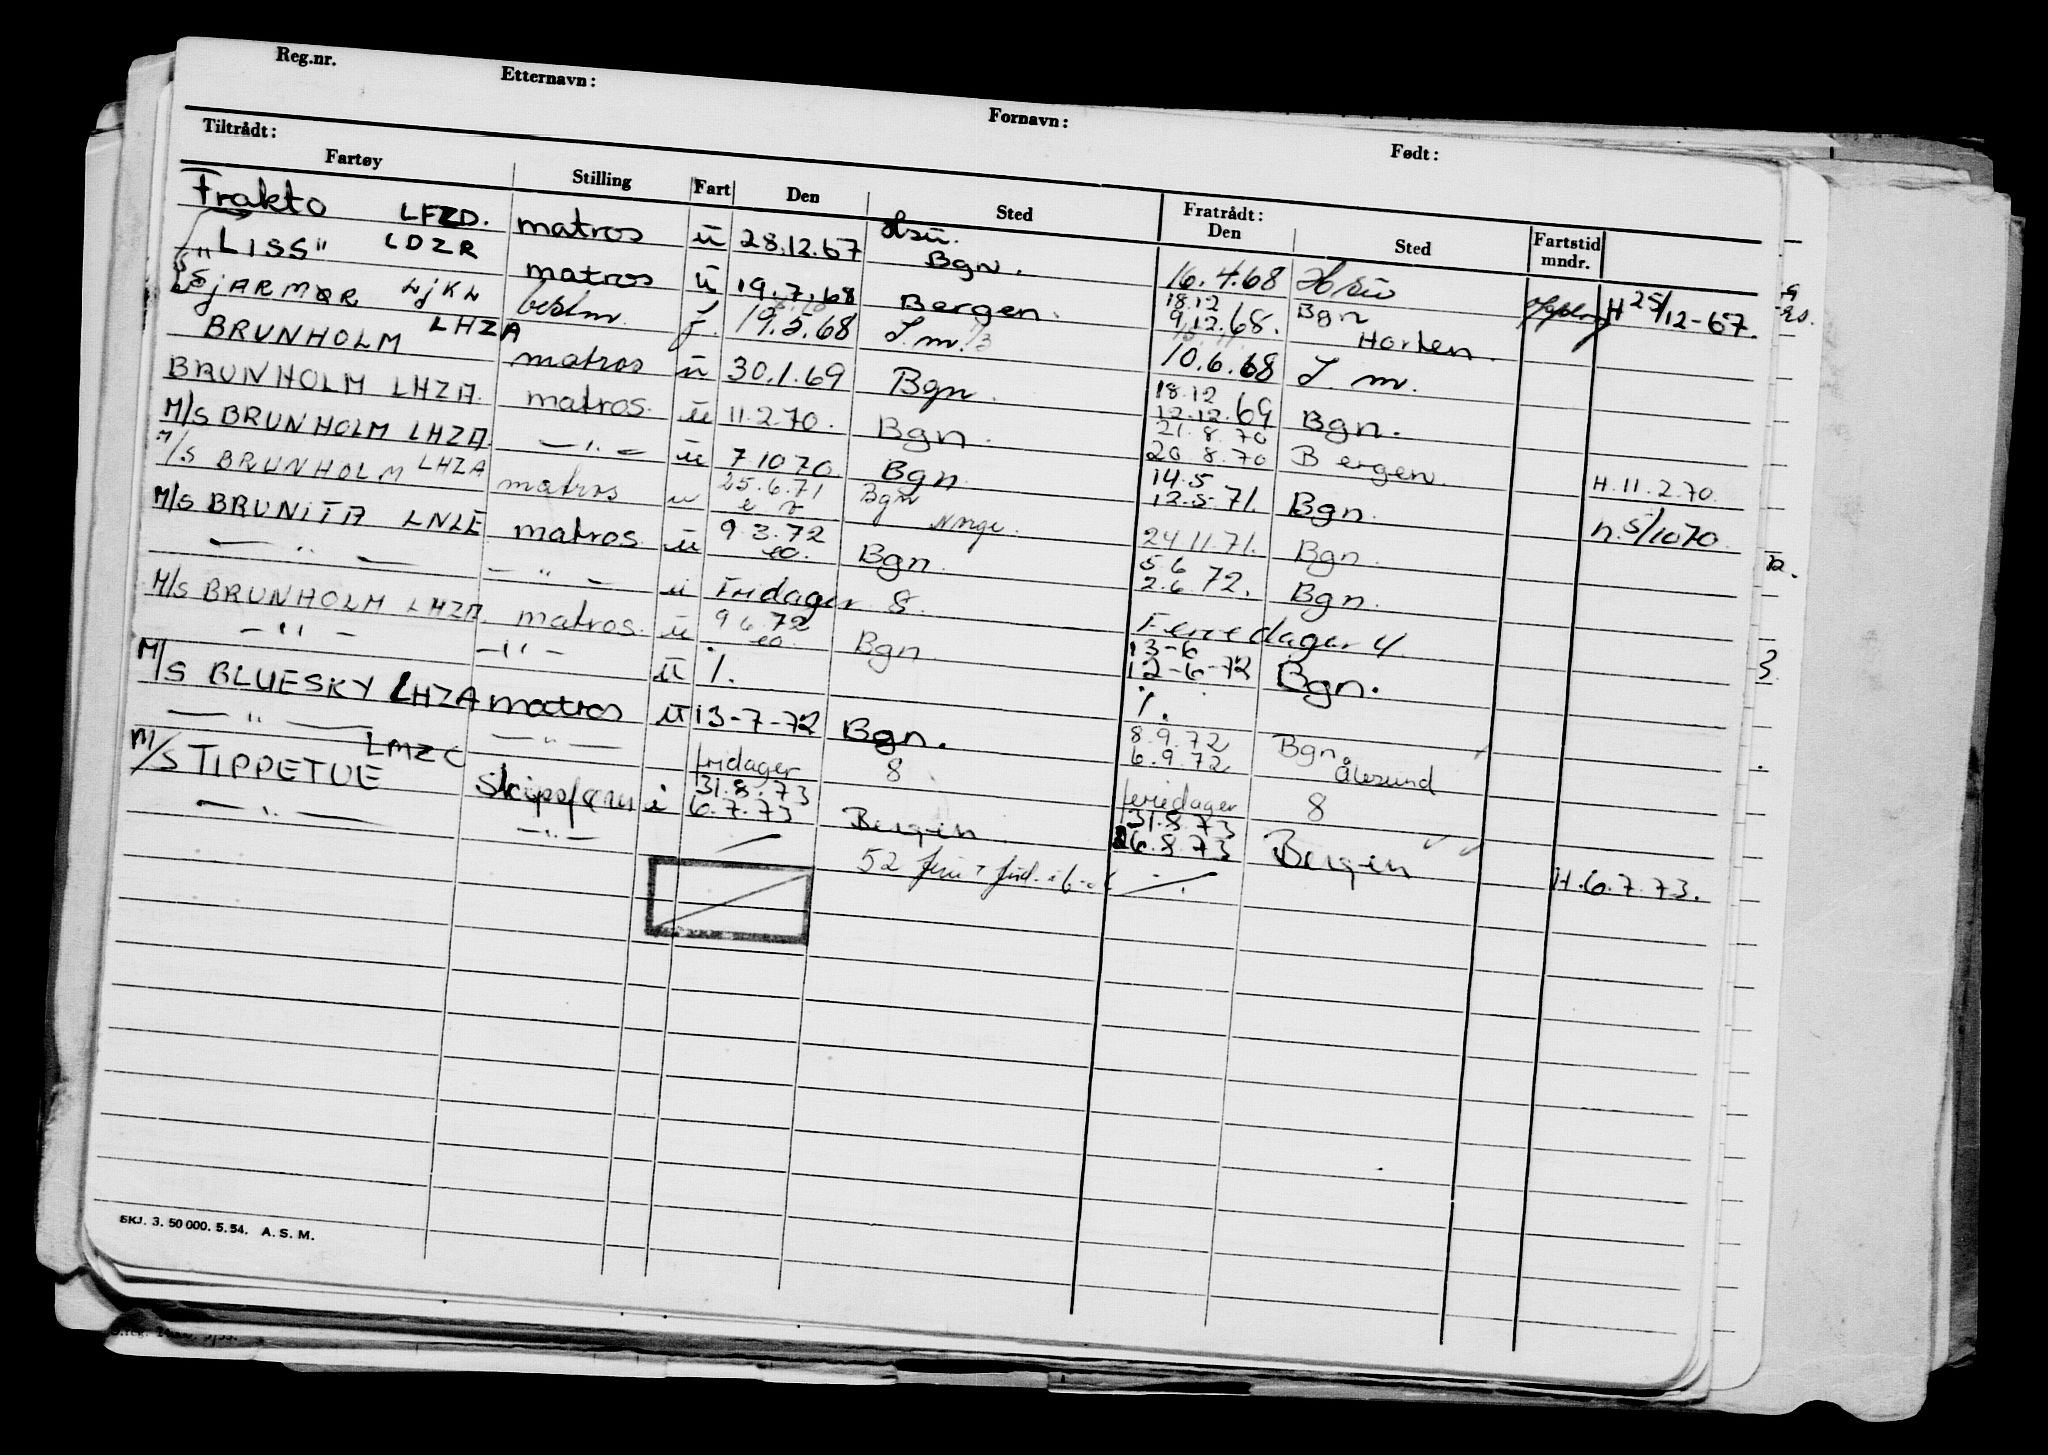 Reg.nr. Etternavn: Fornavn: Født:
Tiltrådt: Fratrådt:
Fartøy Stilling Fart Den Sted Den Sted Fartstid mndr.
Frakto LFZD. matros u 28.12.67 Bgn. 16.4.68 H 25/12-67.
"LISS" LDZR matros u 19.7.68 Bergen. 18.12 9.12.68. Bgn Horten.
JARMAR LJKL bestm. f. 19.5.68 10.6.68
BRUNHOLM LHZA matros u 30.1.69 Bgn. 18.12 12.12.69 Bgn.
BRUNHOLM LHZA. matros. u 11.2.70. Bgn. 21.8.70 20.8.70 Bergen. H.11.2.70.
M/S BRUNHOLM LHZA. — " — u 7.10 70. Bgn 14.5 12.5.71. Bgn. 5/1070.
M/S BRUNHOLM LHZA matros u 25.6.71 Bgn Norge. 24.11.71. Bgn.
M/S BRUNITA LNLE matros u 9.3.72 Bgn. 5 6 2.6.72. Bgn.
— " — — " — u Fridager 8. Feriedager 4
M/S BRUNHOLM LHZA. matros. u 9 6.72 Bgn. 13-6 12-6-72 Bgn.
— " — — " — u %. %.
M/S BLUESKY LHZA matros u 13-7-72 Bgn. 8.9.72 6.9.72 Bgn. Ålesund
— " — — " — fridager 8 feriedager 8
M/S TIPPETUE LMZC i 31.8.73 6.7.73 Bergen 31.8.73 26.8.73 Bergen H.6.7.73.
— " — — " — 52 %.
SKJ. 3. 50 000. 5. 54. A. S. M.